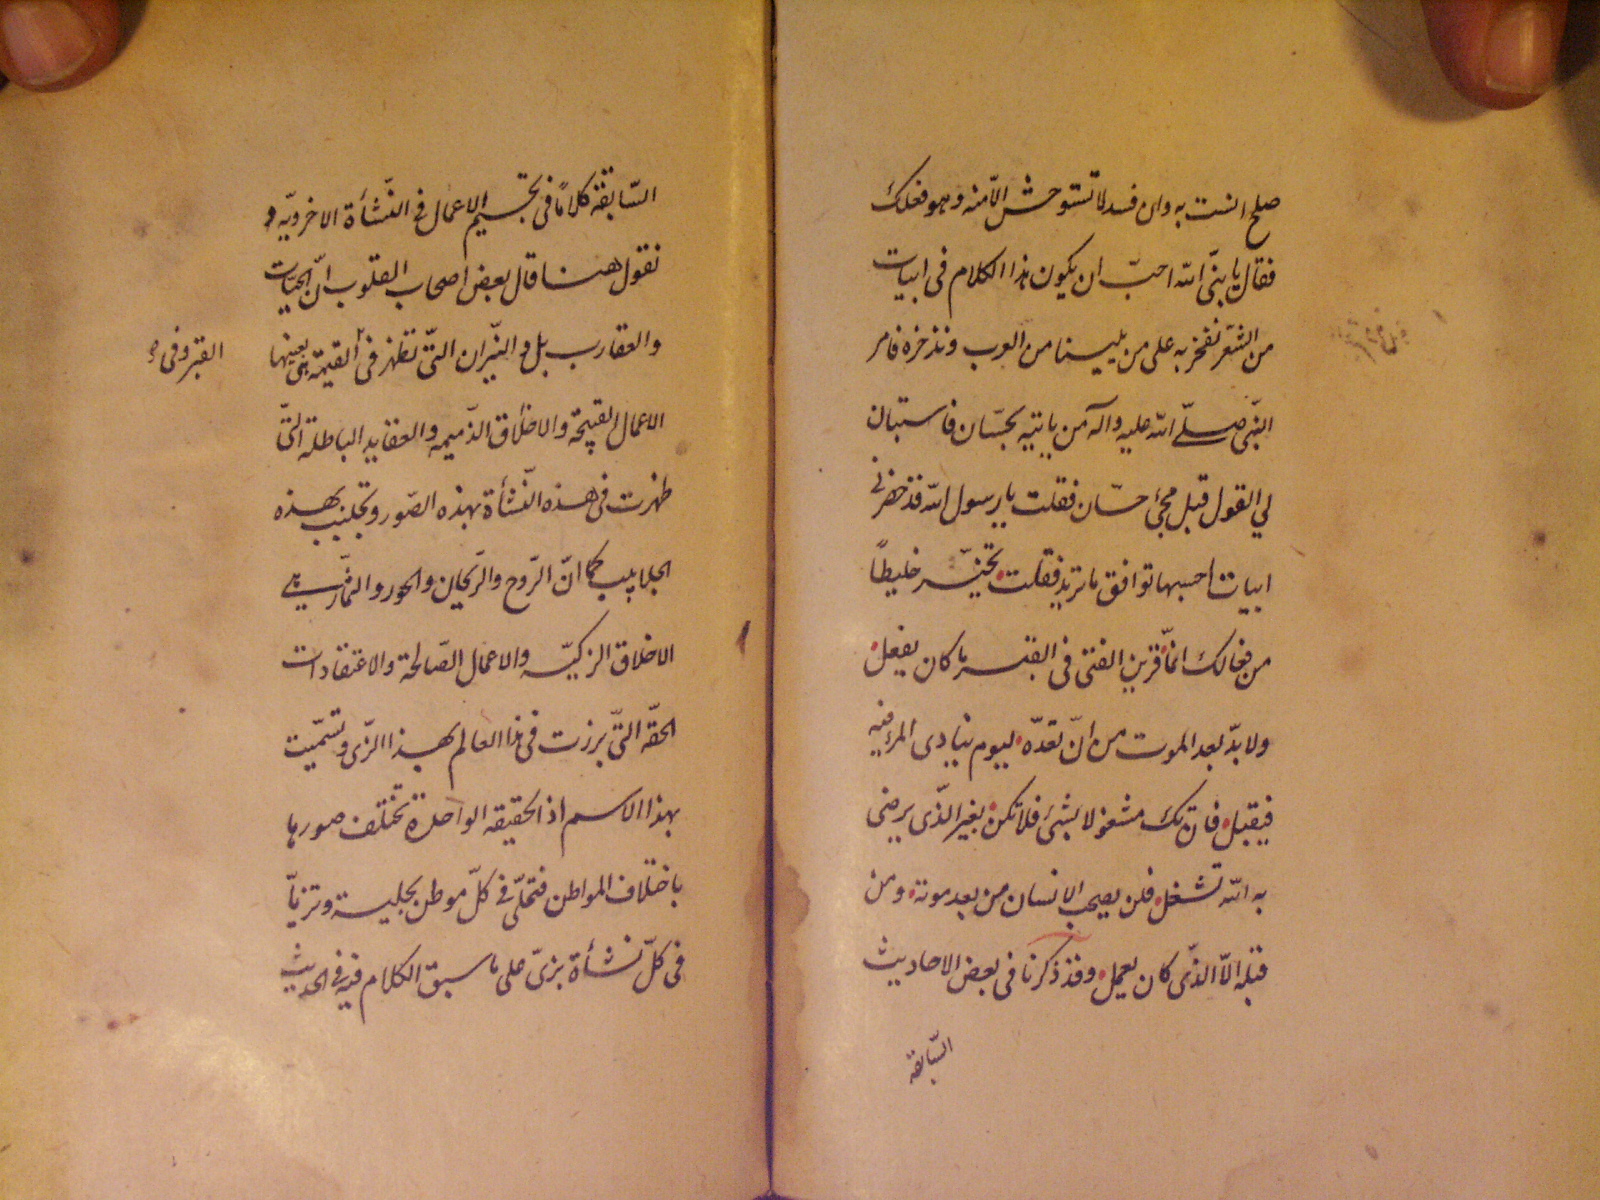 صلح انست به وان فسد لا تستوحش الا منه وهو فعلك
فقال يا نبىّ الله احبّ ان يكون هذا الكلام فى ابيات
من الشّعر نفخر به على من يلينا من العرب وندخره فامر
النّبى صلّى الله عليه وآله من ياتيه بحسّان فاستبان
لي القول قبل مجئ حسّان فقلت يا رسول الله قد حضرنى
ابيات احسبها توافق ما تريد فقلت تخيّر خليطاً
من فعالك انمّا قرين الفتى فى القبر ما كان يفعل
ولا بدّ بعد الموت من انّ تعدّه ليوم ينادى المرء فيه
فيقبل فان تك مشغولا بشئ فلا تكن بغير الّذى يرضى
به الله تشغل فلن يصحب الانسان من بعد موته ومن
قبله الاّ الّذى كان يعمل وقد ذكرنا فى بعض الاحاديث
السّابقة
السّابقة كلامًا فى تجسيم الاعمال في النّشأة الاخرويّه و
نقول هنا قال بعض اصحاب القلوب انّ الحيّات
والعقارب بل والنّيران التّى تظهر فى القيمة هى بعينها
القبر وفى
الاعمال القبيحة والاخلاق الذّميمه والعقايد الباطلة التّى
ظهرت فى هذه النّشأة بهذه الصّور وتجلببت بهذه
الجلابيب كما انّ الرّوح والرّيحان والحور والثّمار هى
الاخلاق الزكيّه والاعمال الصّالحة والاعتقادات
الحقّه التّى برزت فى هذا العالم بهذا الزّى وتسمّيت
بهذا الاسم اذ الحقيقه الواحدة تختلف صورها
باختلاف المواطن فتحلّى في كلّ موطن بحلية وتزيّا
فى كلّ نشأة بزىّ على ما سبق الكلام فيه فى الحديث